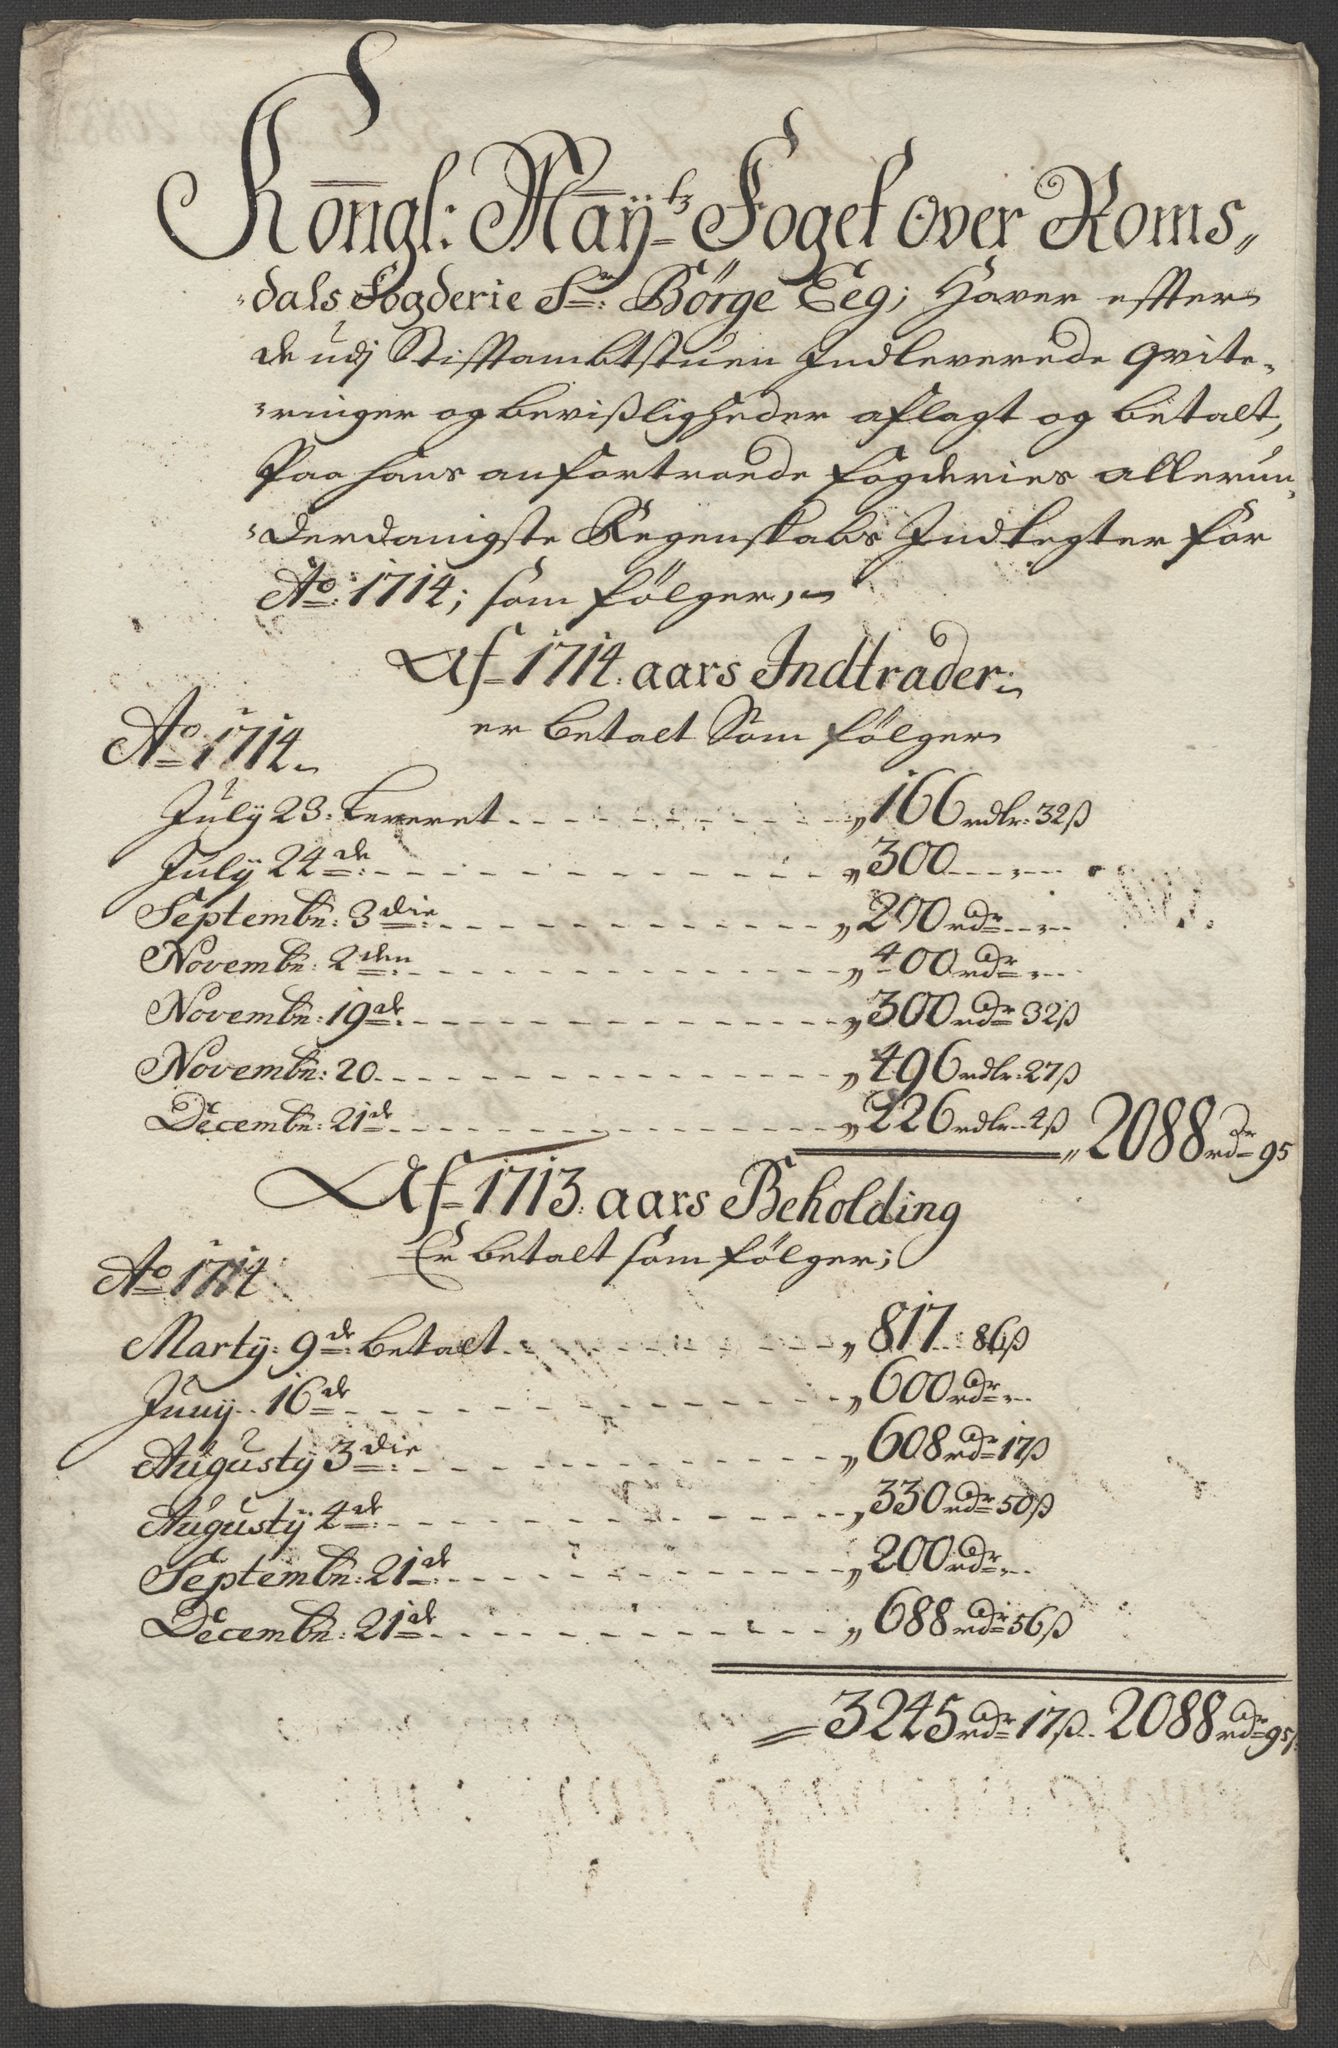 Kongl: May:tz Foget over Roms„
„dals Fogderie Sr: Börge Eeg; Haver effter
de udj Stifftambtstuen Indleverede qvite„
„ringer og bevißligheder aflagt og betalt,
Paa hans anfortroede fogderies allerun„
„derdanigste Regenskabs Indtegter for
Ao: 1714; som følger,
Af 1714. aars Indtrader:
er betalt Som følger
Ao 1714
July 23: Leveret „166 rdlr: 32ß
July 24de: „300
Septembr: 3die: „200 rdr
Novembr: 2den: „400 rdr
Novembr: 19de: „300 rdr 32ß
Novembr: 20 „496 rdlr: 27ß
Decembr: 21de „226 rdlr 4ß „2088 rdr 95
Af 1713: aars Beholding
Er betalt som følger;
Ao 1714
Marty: 9de: betalt „817: 86ß
Juny 16de „600 rdr
Augusty 3die: „608 rdr 17ß
Augusty 4de: „330 rdr 50ß
Septembr: 21de „200 rdr
Decembr: 21de „688 rdr 56ß
3245 rdr 17ß 2088 rdr 95ß